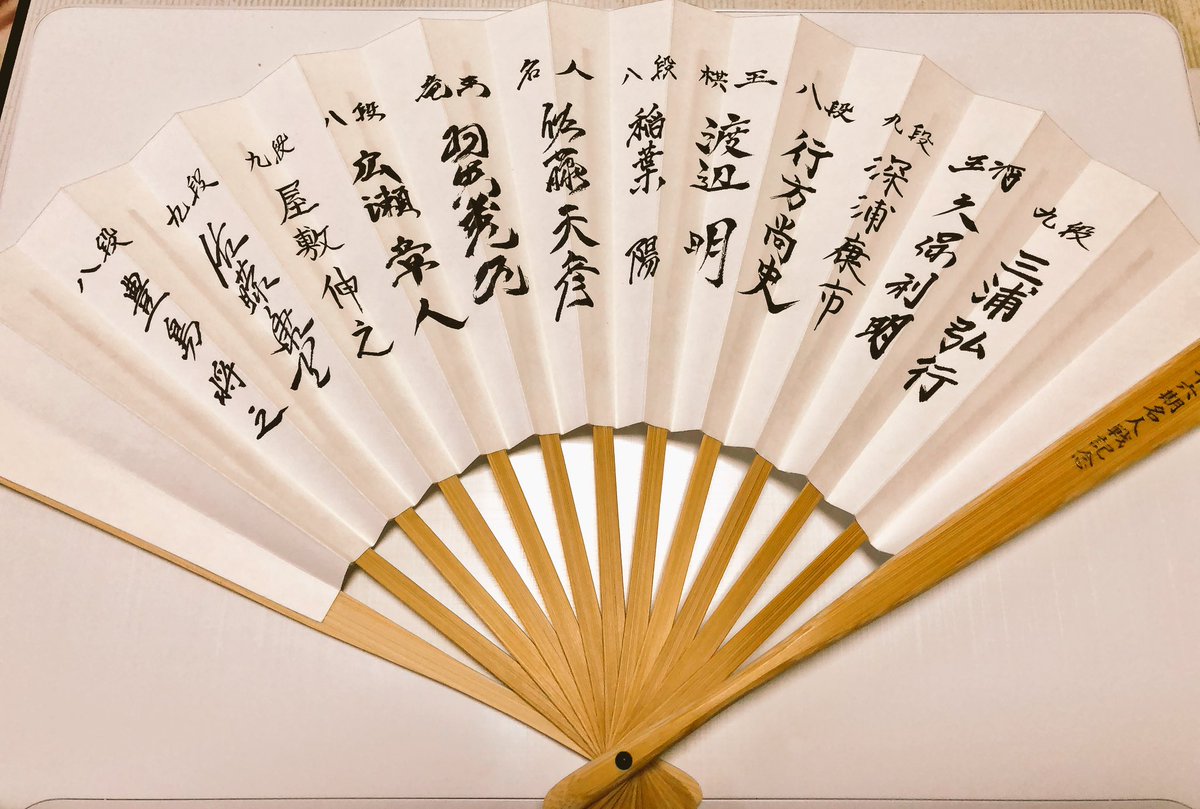 十六期名人戦記念
九段 三浦弘行
王将 久保利明
九段 深浦康市
八段 行方尚史
棋王 渡辺明
八段 稲葉陽
名人 佐藤天彦
竜王 羽生善治
八段 広瀬章人
九段 屋敷伸之
九段 佐藤康光
八段 豊島将之